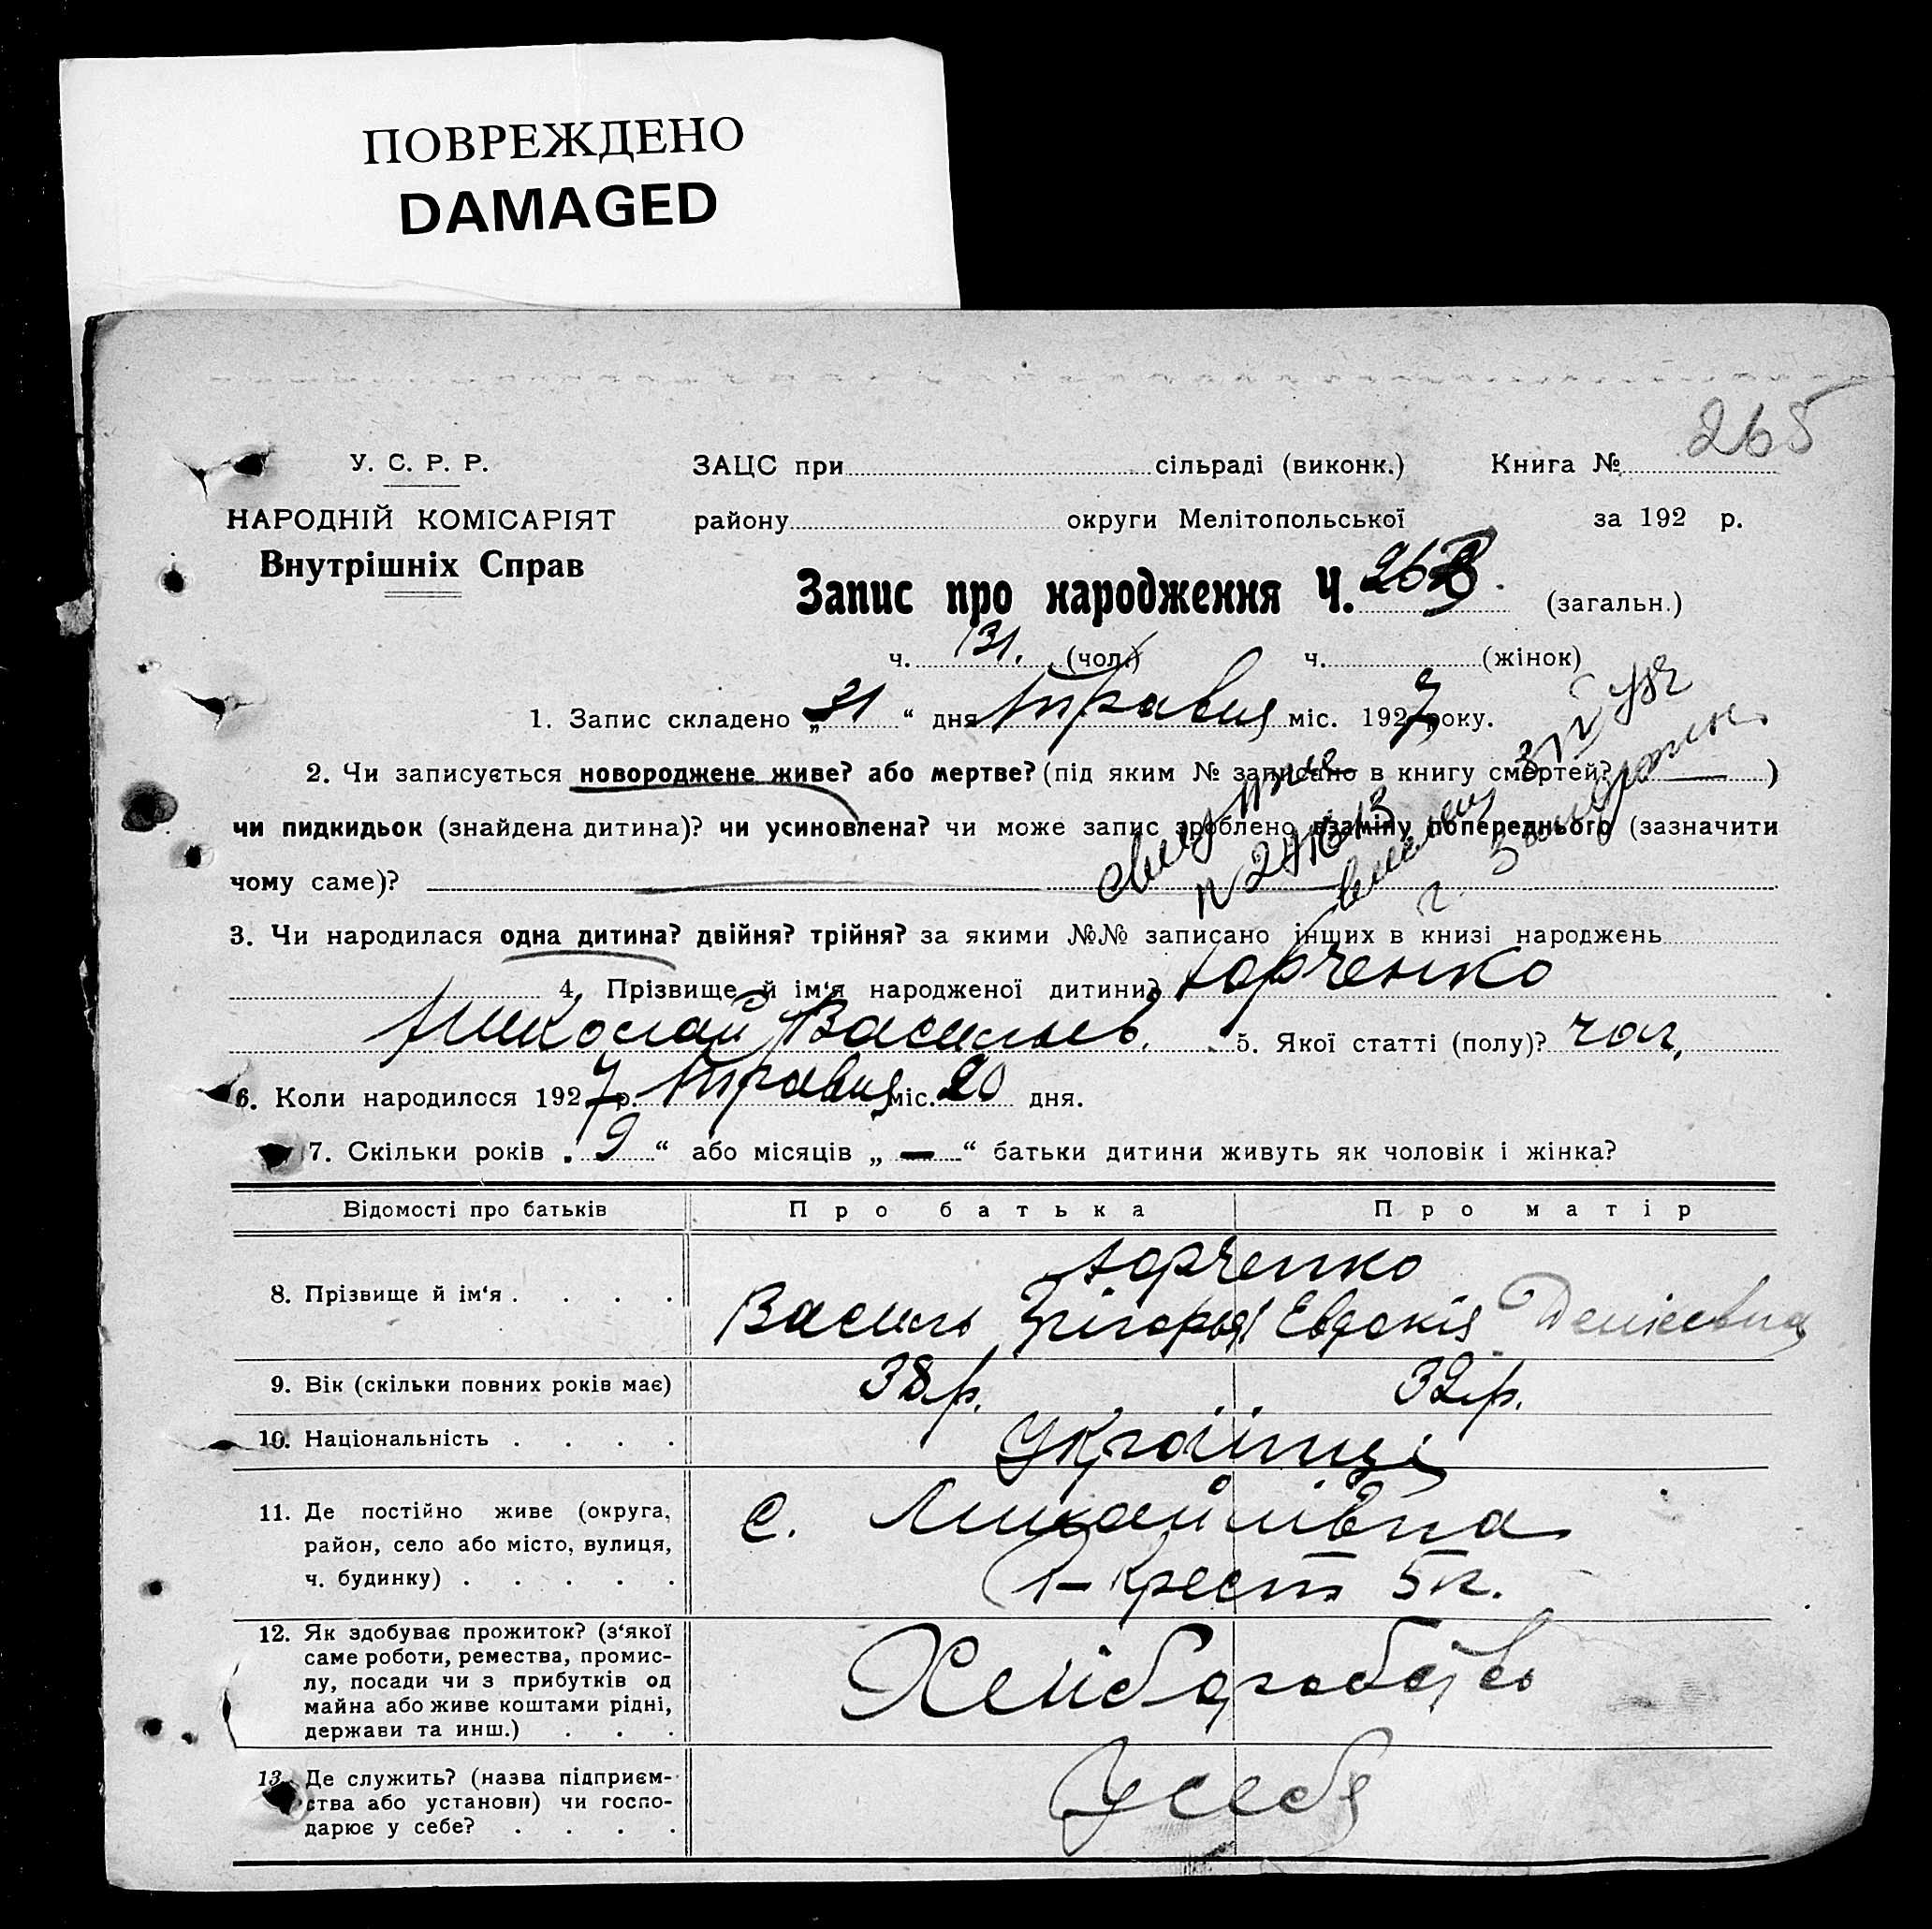 ПОВРЕЖДЕНО
DAMAGED
265
У. С. Р. Р.
ЗАЦС при сільраді (виконк.) Книга №
НАРОДНІЙ КОМІСАРІЯТ
району округи Мелітопольської за 192 р.
Внутрішніх Справ
Запис про народження Ч. (загальн.)
ч. 131. (чол.) ч. (жінок)
1. Запис складено „21“ дня травня міс. 1927 року.
2. Чи записується новороджене живе? або мертве? (під яким № записано в книгу смертей? —)
чи пидкидьок (знайдена дитина)? чи усиновлена? чи може запис зроблено взаміну попереднього (зазначити
чому саме)?
3. Чи народилася одна дитина? двійня? трійня? за якими №№ записано інших в книзі народжень
4. Прізвище й ім‘я народженої дитини? Юрченко
Николай Васильев. 5. Якої статті (полу)? чол.
6. Коли народилося 1927 р. травня міс. 20 дня.
7. Скільки років „9“ або місяців „—“ батьки дитини живуть як чоловік і жінка?
Відомості про батьків Про батька Про матір
Юрченко
8. Прізвище й ім‘я . . . . Василь Грігорьев Евдокія Денісовна
9. Вік (скільки повних років має) 38 р. 32 р.
10. Національність . . . . Українці
11. Де постійно живе (округа, с. Михайлівна
район, село або місто, вулиця,
ч. будинку) . . . . . 1-Крест 5 п.
12. Як здобуває прожиток? (з‘якої
саме роботи, ремества, промис-
лу, посади чи з прибутків од Хлібороб
майна або живе коштами рідні,
держави та инш.) . . .
13. Де служить? (назва підприєм-
ства або установи) чи госпо- У себя
дарює у себе? . . . .